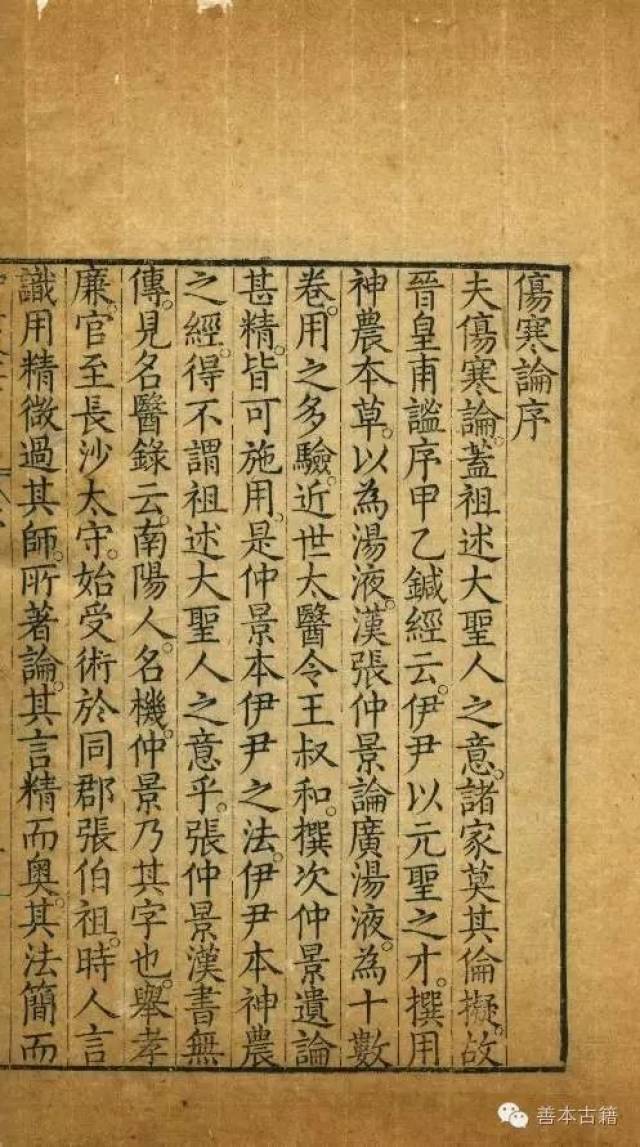 傷寒論序
夫傷寒論。蓋祖述大聖人之意。諸家莫其倫擬。故
晉皇甫謐序甲乙鍼經云。伊尹以元聖之才。撰用
神農本草。以為湯液。漢張仲景論廣湯液。為十數
卷。用之多驗。近世太醫令王叔和。撰次仲景遺論
甚精。皆可施用。是仲景本伊尹之法。伊尹本神農
之經。得不謂祖述大聖人之意乎。張仲景漢書無
傳。見名醫錄云。南陽人。名機。仲景乃其字也。舉孝
廉。官至長沙太守。始受術於同郡張伯祖。時人言
識用精微過其師。所著論。其言精而奧。其法簡而
善本古籍